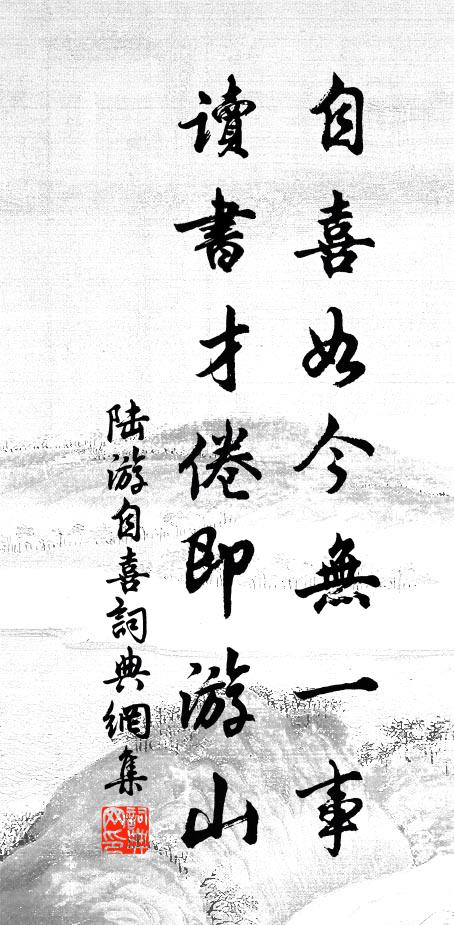 自喜如今無一事
讀書才倦即游山
陆游自喜詞典網集